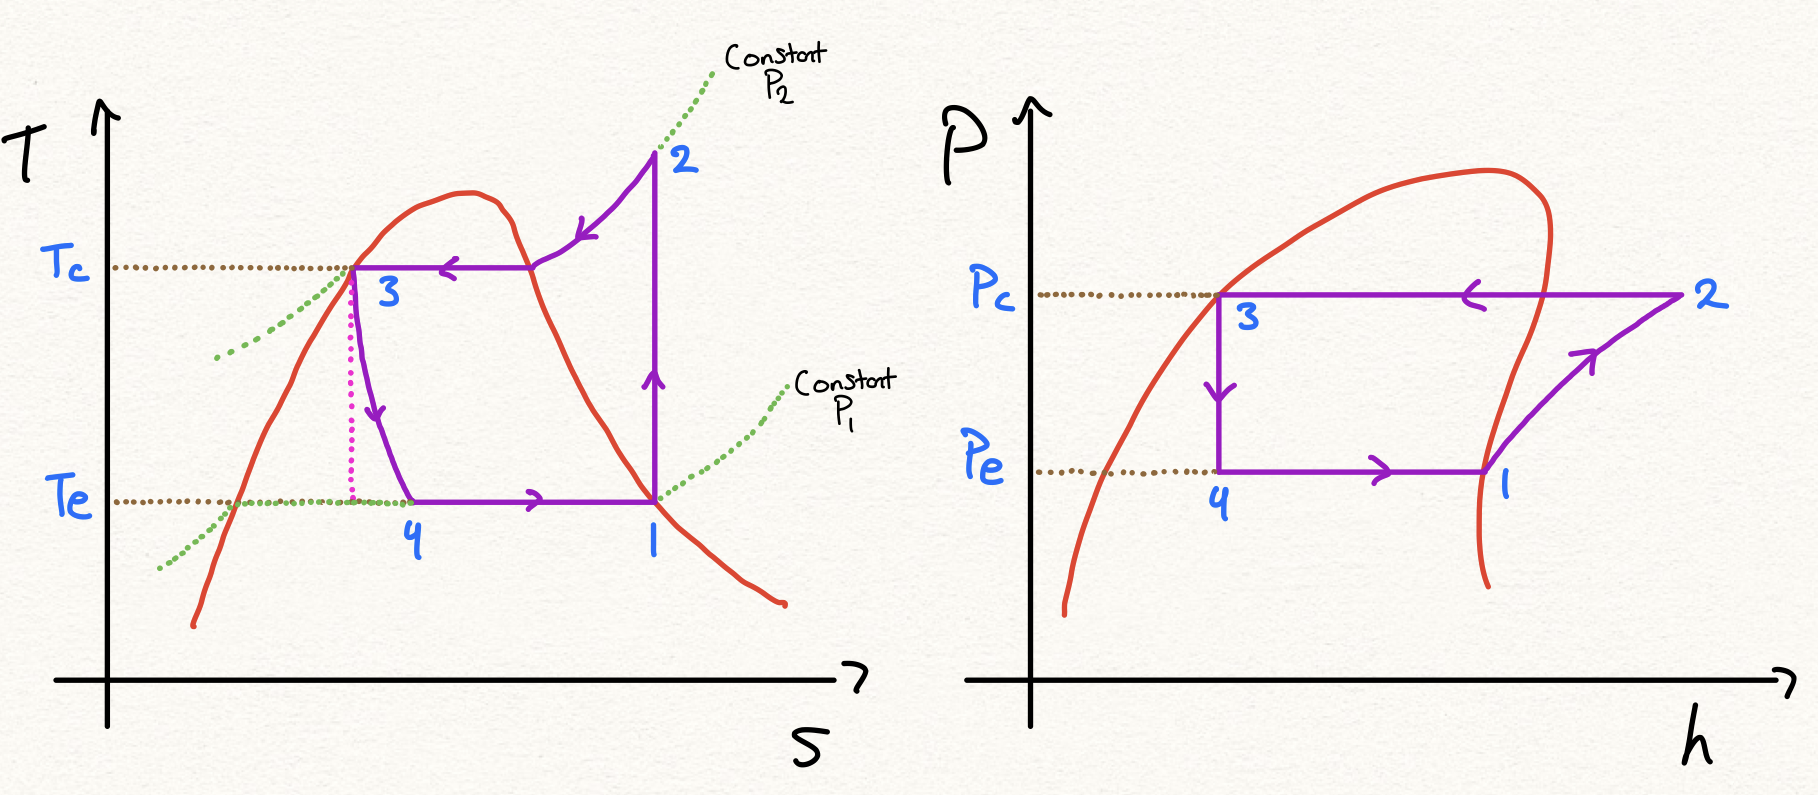 Constant
P2
T
2
Tc
3
Constant
P1
Te
4
1
S
P
Pc
2
3
Pe
4
1
h